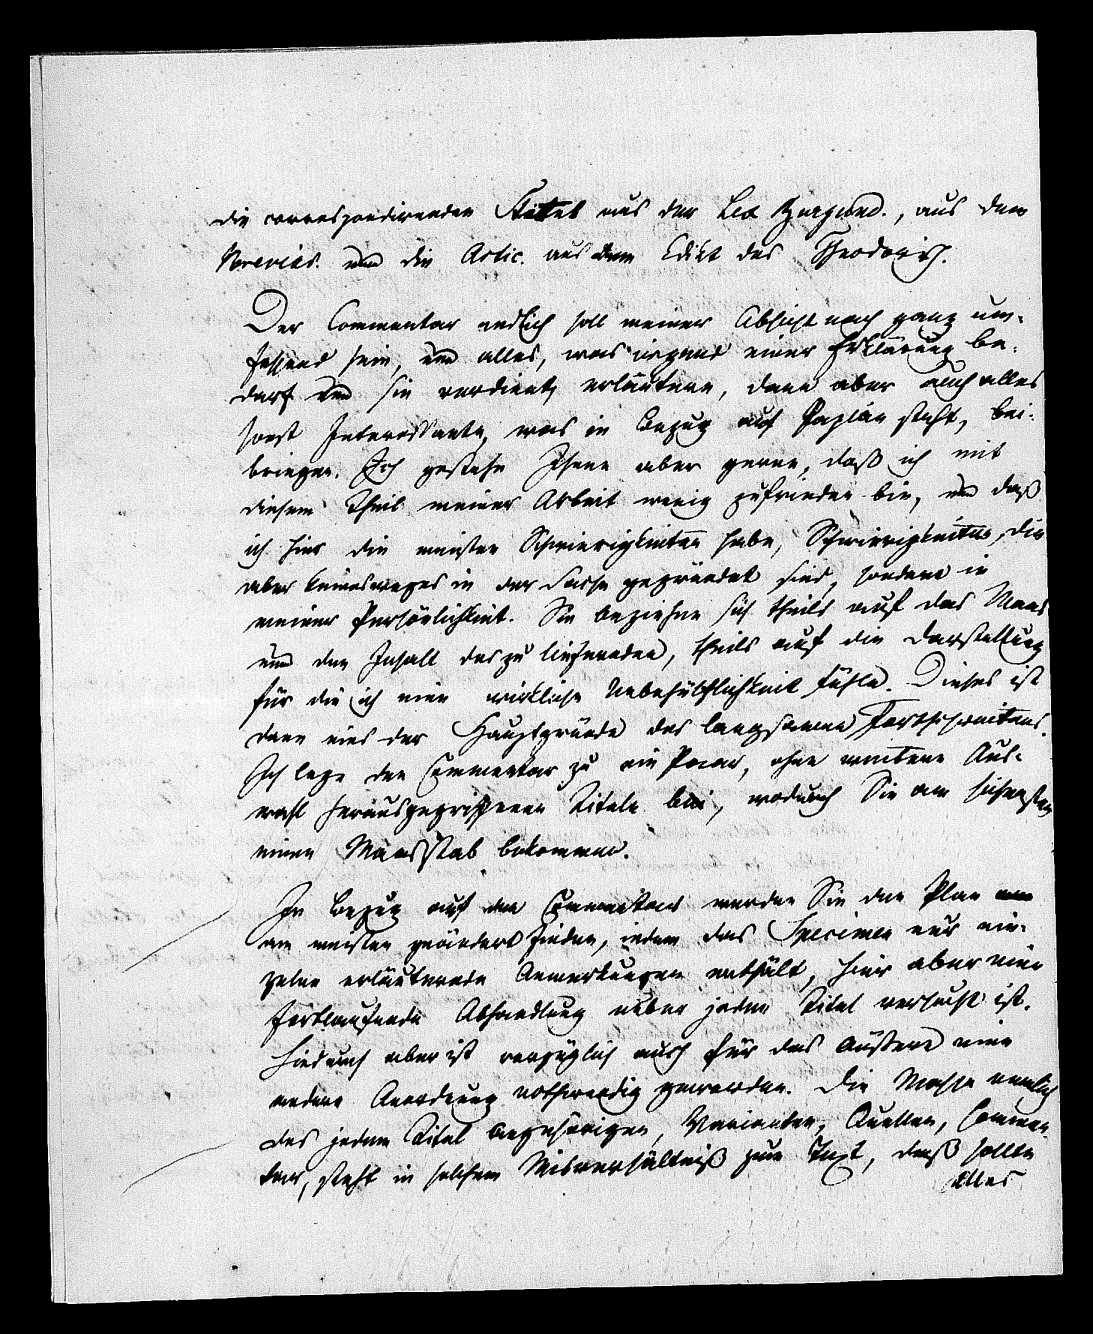 die correspondirenden Titel aus der Lex Burgund., aus dem
Breviar. und die Artic. aus dem Edikt des Theodorich.
Der Commentar endlich soll meiner Absicht nach ganz um-
fassend sein, und alles, was irgend einer Erklärung be-
darf und sie verdient, erläutern, dann aber auch alles
sonst Interessante, was in Bezug auf Papian steht, bei-
bringen. Ich gestehe Ihnen aber gerne, daß ich mit
diesem Theil meiner Arbeit wenig zufrieden bin, und daß
ich hier die meisten Schwierigkeiten habe, Schwierigkeiten, die
aber keinesweges in der Sache gegründet sind, sondern in
meiner Persönlichkeit. Sie beziehen sich theils auf das Maas
und den Inhalt des zu liefernden, theils auf die Darstellung
für die ich eine wirkliche Unbehülflichkeit fühle. Dieses ist
denn eins der Hauptgründe des langsamen Fortschreitens.
Ich lege den Commentar zu ein Paar, ohne weitere Aus-
wahl herausgegriffenen Titeln bei, wodurch Sie am sichersten
einen Maasstab bekommen.
In Bezug auf den Commentar werden Sie den Plan
am meisten geändert finden, indem das Specimen nur ein-
zelne erläuternde Anmerkungen enthält, hier aber eine
fortlaufende Abhandlung ueber jeden Titel versucht ist.
Hiedurch aber ist vorzüglich auch für das Äußere eine
andere Anordnung nothwendig geworden. Die Masse nemlich
des jedem Titel angehörigen, Varianten, Quellen, Commen-
tar, steht in solchem Misverhältniß zum Text, daß sollte
alles